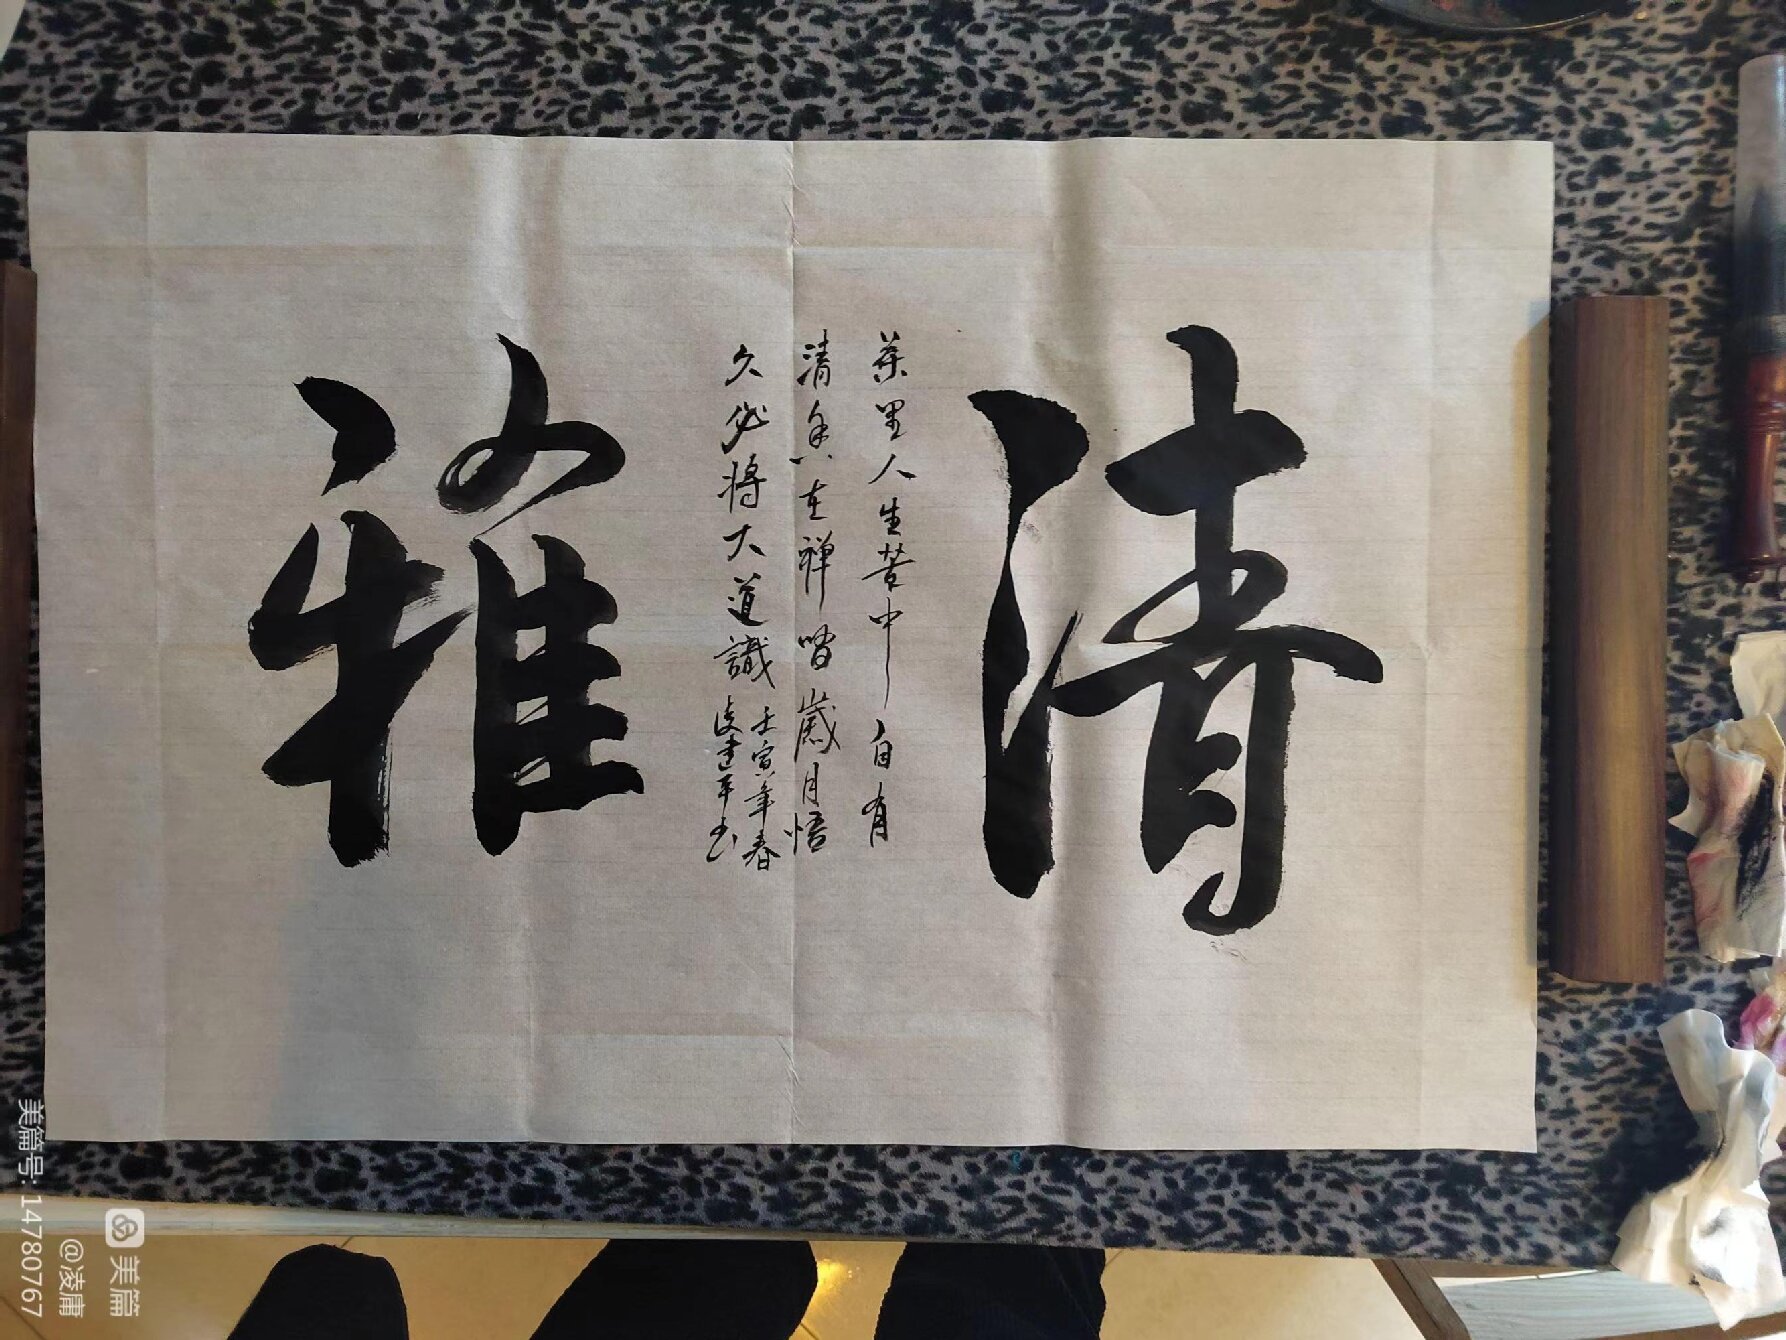 清雅
茶里人生苦中自有
清香在禅啫歲月悟
久必将大道識
壬寅年春
凌建平书
美篇
@凌庸
美篇号: 14780767